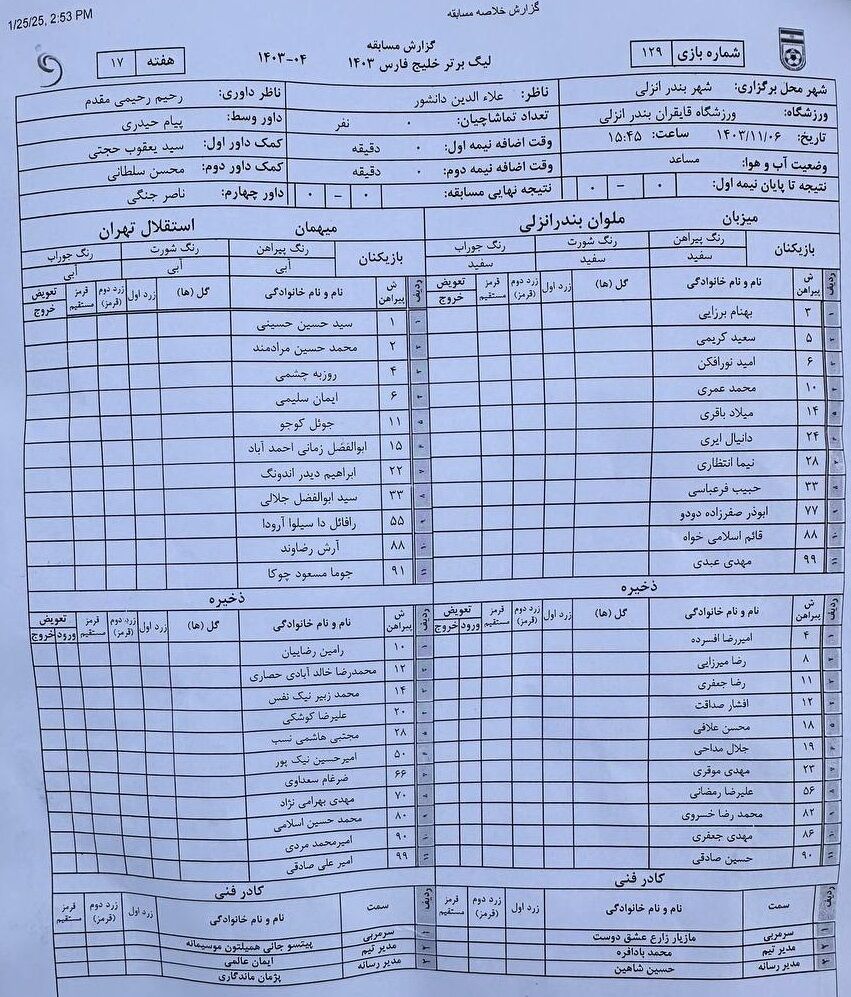 1/25/25, 2:53 PM
گزارش خلاصه مسابقه
گزارش مسابقه
شماره بازی ۱۲۹
لیگ برتر خلیج فارس ۱۴۰۳ ۰۴-۱۴۰۳
هفته ۱۷
شهر محل برگزاری: شهر بندر انزلی
ورزشگاه: ورزشگاه قایقران بندر انزلی
تاریخ: ۱۴۰۳/۱۱/۰۶ ساعت: ۱۵:۴۵
وضعیت آب و هوا: مساعد
نتیجه تا پایان نیمه اول: ۰ – ۰
ناظر: علاء الدین دانشور
تعداد تماشاچیان: ۰ نفر
وقت اضافه نیمه اول: ۰ دقیقه
وقت اضافه نیمه دوم: ۰ دقیقه
نتیجه نهایی مسابقه: ۰ – ۰
ناظر داوری: رحیم رحیمی مقدم
داور وسط: پیام حیدری
کمک داور اول: سید یعقوب حجتی
کمک داور دوم: محسن سلطانی
داور چهارم: ناصر جنگی
میزبان ملوان بندرانزلی
بازیکنان
رنگ پیراهن رنگ شورت رنگ جوراب
سفید سفید سفید
ردیف ش پیراهن نام و نام خانوادگی گل (ها) زرد اول زرد دوم (قرمز) قرمز مستقیم تعویض خروج
۱ ۳ بهنام برزایی
۲ ۵ سعید کریمی
۳ ۶ امید نورافکن
۴ ۱۰ محمد عمری
۵ ۱۴ میلاد باقری
۶ ۲۴ دانیال ایری
۷ ۲۸ نیما انتظاری
۸ ۳۳ حبیب فرعباسی
۹ ۷۷ ابوذر صفرزاده دودو
۱۰ ۸۸ قائم اسلامی خواه
۱۱ ۹۹ مهدی عبدی
ذخیره
ردیف ش پیراهن نام و نام خانوادگی گل (ها) زرد اول زرد دوم (قرمز) قرمز مستقیم تعویض ورود خروج
۱ ۴ امیررضا افسرده
۲ ۸ رضا میرزایی
۳ ۱۱ رضا جعفری
۴ ۱۲ افشار صداقت
۵ ۱۸ محسن علافی
۶ ۱۹ جلال مداحی
۷ ۲۳ مهدی موقری
۸ ۵۶ علیرضا رمضانی
۹ ۸۲ محمد رضا خسروی
۱۰ ۸۶ مهدی جعفری
۱۱ ۹۰ حسین صادقی
کادر فنی
ردیف سمت نام و نام خانوادگی زرد اول زرد دوم (قرمز) قرمز مستقیم
۱ سرمربی مازیار زارع عشق دوست
۲ مدیر تیم محمد بادافره
۳ مدیر رسانه حسین شاهین
میهمان استقلال تهران
بازیکنان
رنگ پیراهن رنگ شورت رنگ جوراب
آبی آبی آبی
ردیف ش پیراهن نام و نام خانوادگی گل (ها) زرد اول زرد دوم (قرمز) قرمز مستقیم تعویض خروج
۱ ۱ سید حسین حسینی
۲ ۲ محمد حسین مرادمند
۳ ۴ روزبه چشمی
۴ ۶ ایمان سلیمی
۵ ۱۱ جوئل کوجو
۶ ۱۵ ابوالفضل زمانی احمد آباد
۷ ۲۲ ابراهیم دیدر اندونگ
۸ ۳۳ سید ابوالفضل جلالی
۹ ۵۵ رافائل دا سیلوا آرودا
۱۰ ۸۸ آرش رضاوند
۱۱ ۹۱ جوما مسعود چوکا
ذخیره
ردیف ش پیراهن نام و نام خانوادگی گل (ها) زرد اول زرد دوم (قرمز) قرمز مستقیم تعویض ورود خروج
۱ ۱۰ رامین رضاییان
۲ ۱۲ محمدرضا خالد آبادی حصاری
۳ ۱۴ محمد زبیر نیک نفس
۴ ۲۰ علیرضا کوشکی
۵ ۲۸ مجتبی هاشمی نسب
۶ ۵۰ امیرحسین نیک پور
۷ ۶۶ ضرغام سعداوی
۸ ۷۰ مهدی بهرامی نژاد
۹ ۸۰ محمد حسین اسلامی
۱۰ ۹۰ امیرمحمد مردی
۱۱ ۹۹ امیر علی صادقی
کادر فنی
ردیف سمت نام و نام خانوادگی زرد اول زرد دوم (قرمز) قرمز مستقیم
۱ سرمربی پیتسو جانی همیلتون موسیمانه
۲ مدیر تیم ایمان عالمی
۳ مدیر رسانه پژمان ماندگاری